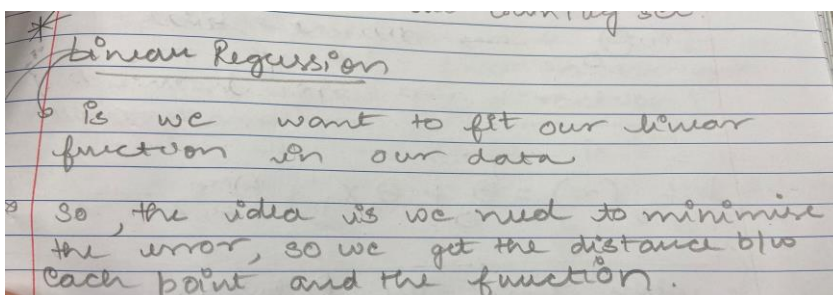 * Linear Regression
is we want to fit our linear
function in our data
so, the idea is we need to minimise
the error, so we get the distance b/w
each point and the function.